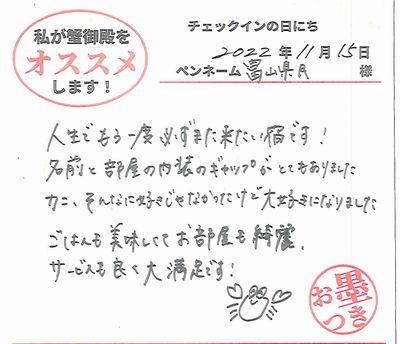 私が蟹御殿を
オススメ
します！
チェックインの日にち
2022年11月15日
ペンネーム 富山県民 様
人生でもう一度必ずまた来たい宿です！
名前と部屋の内装のギャップがとてもありました
カニ、そんなに好きじゃなかったけど大好きになりました
ごはんも美味しくてお部屋も綺麗、
サービスも良く大満足です！
お墨つき